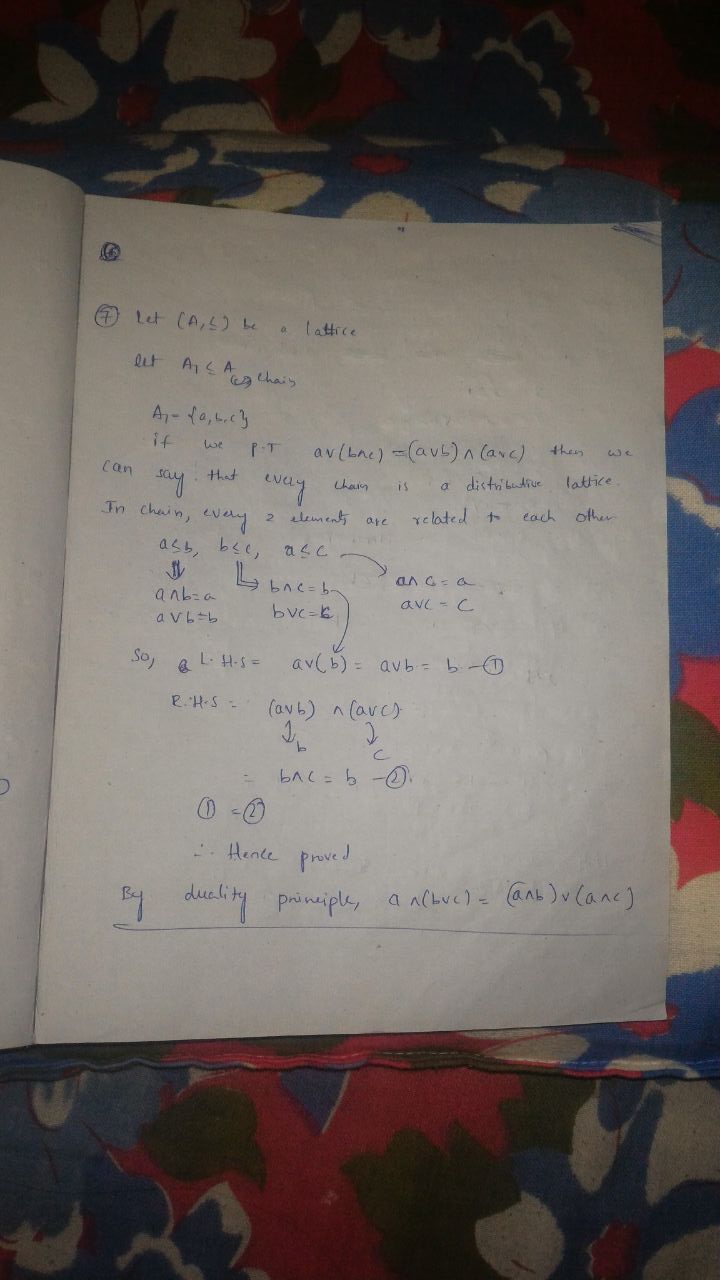 ⑦ Let (A,≤) be a lattice
let A₁ ≤ A chain
A₁ = {a,b,c}
if we P.T a∨(b∧c) = (a∨b) ∧ (a∨c) then we
can say that every chain is a distributive lattice.
In chain, every 2 elements are related to each other
a≤b, b≤c, a≤c
a∧b=a b∧c=b a∧c=a
a∨b=b b∨c=c a∨c=c
So, L.H.S = a∨(b) = a∨b = b –①
R.H.S = (a∨b) ∧ (a∨c)
b c
= b∧c = b –②
① = ②
∴ Hence proved
By duality principle, a∧(b∨c) = (a∧b)∨(a∧c)